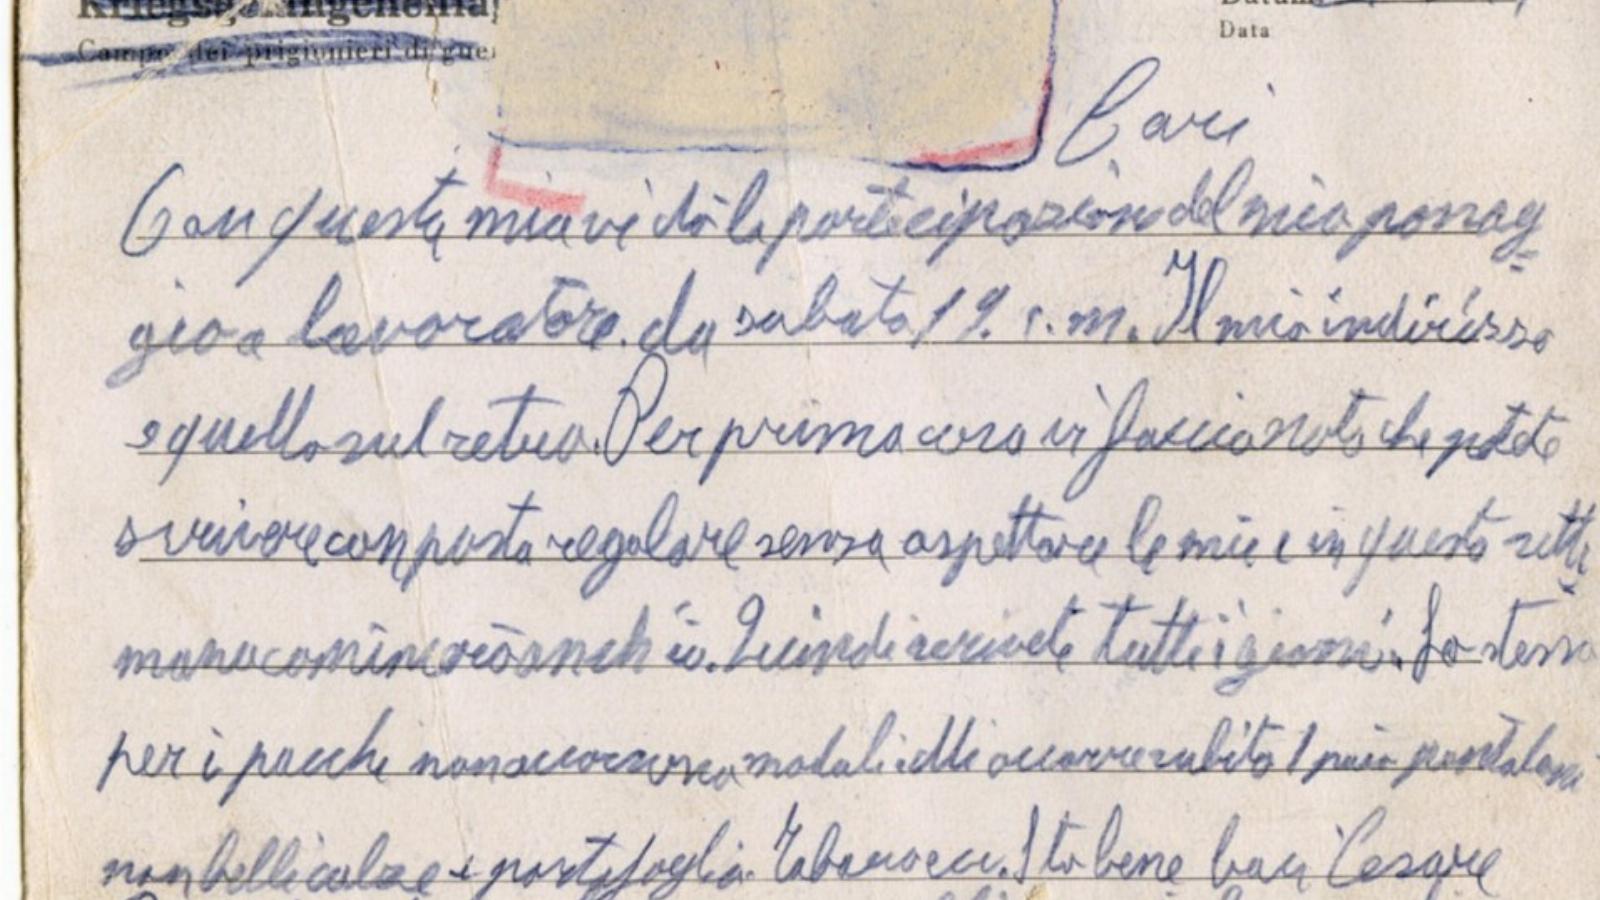 Kriegsgefangenenlag
Datum
Campo dei prigionieri di gue
Data
Cari
Con questa mia vi dò la partecipazione del mio passag=
gio a lavoratore. da sabato 19. c. m. Il mio indirizzo
e quello sul retro. Per prima cosa vi faccio noto che potete
scrivere con posta regolare senza aspettare le mie e in questa setti=
mana comincerò anch'io. Quindi scrivete tutti i giorni. Lo stesso
per i pacchi non occorrono moduli. Mi occorre subito 1 paio pantaloni
non belli calze e portafoglio. Tabacco ecc. Sto bene baci Cesare